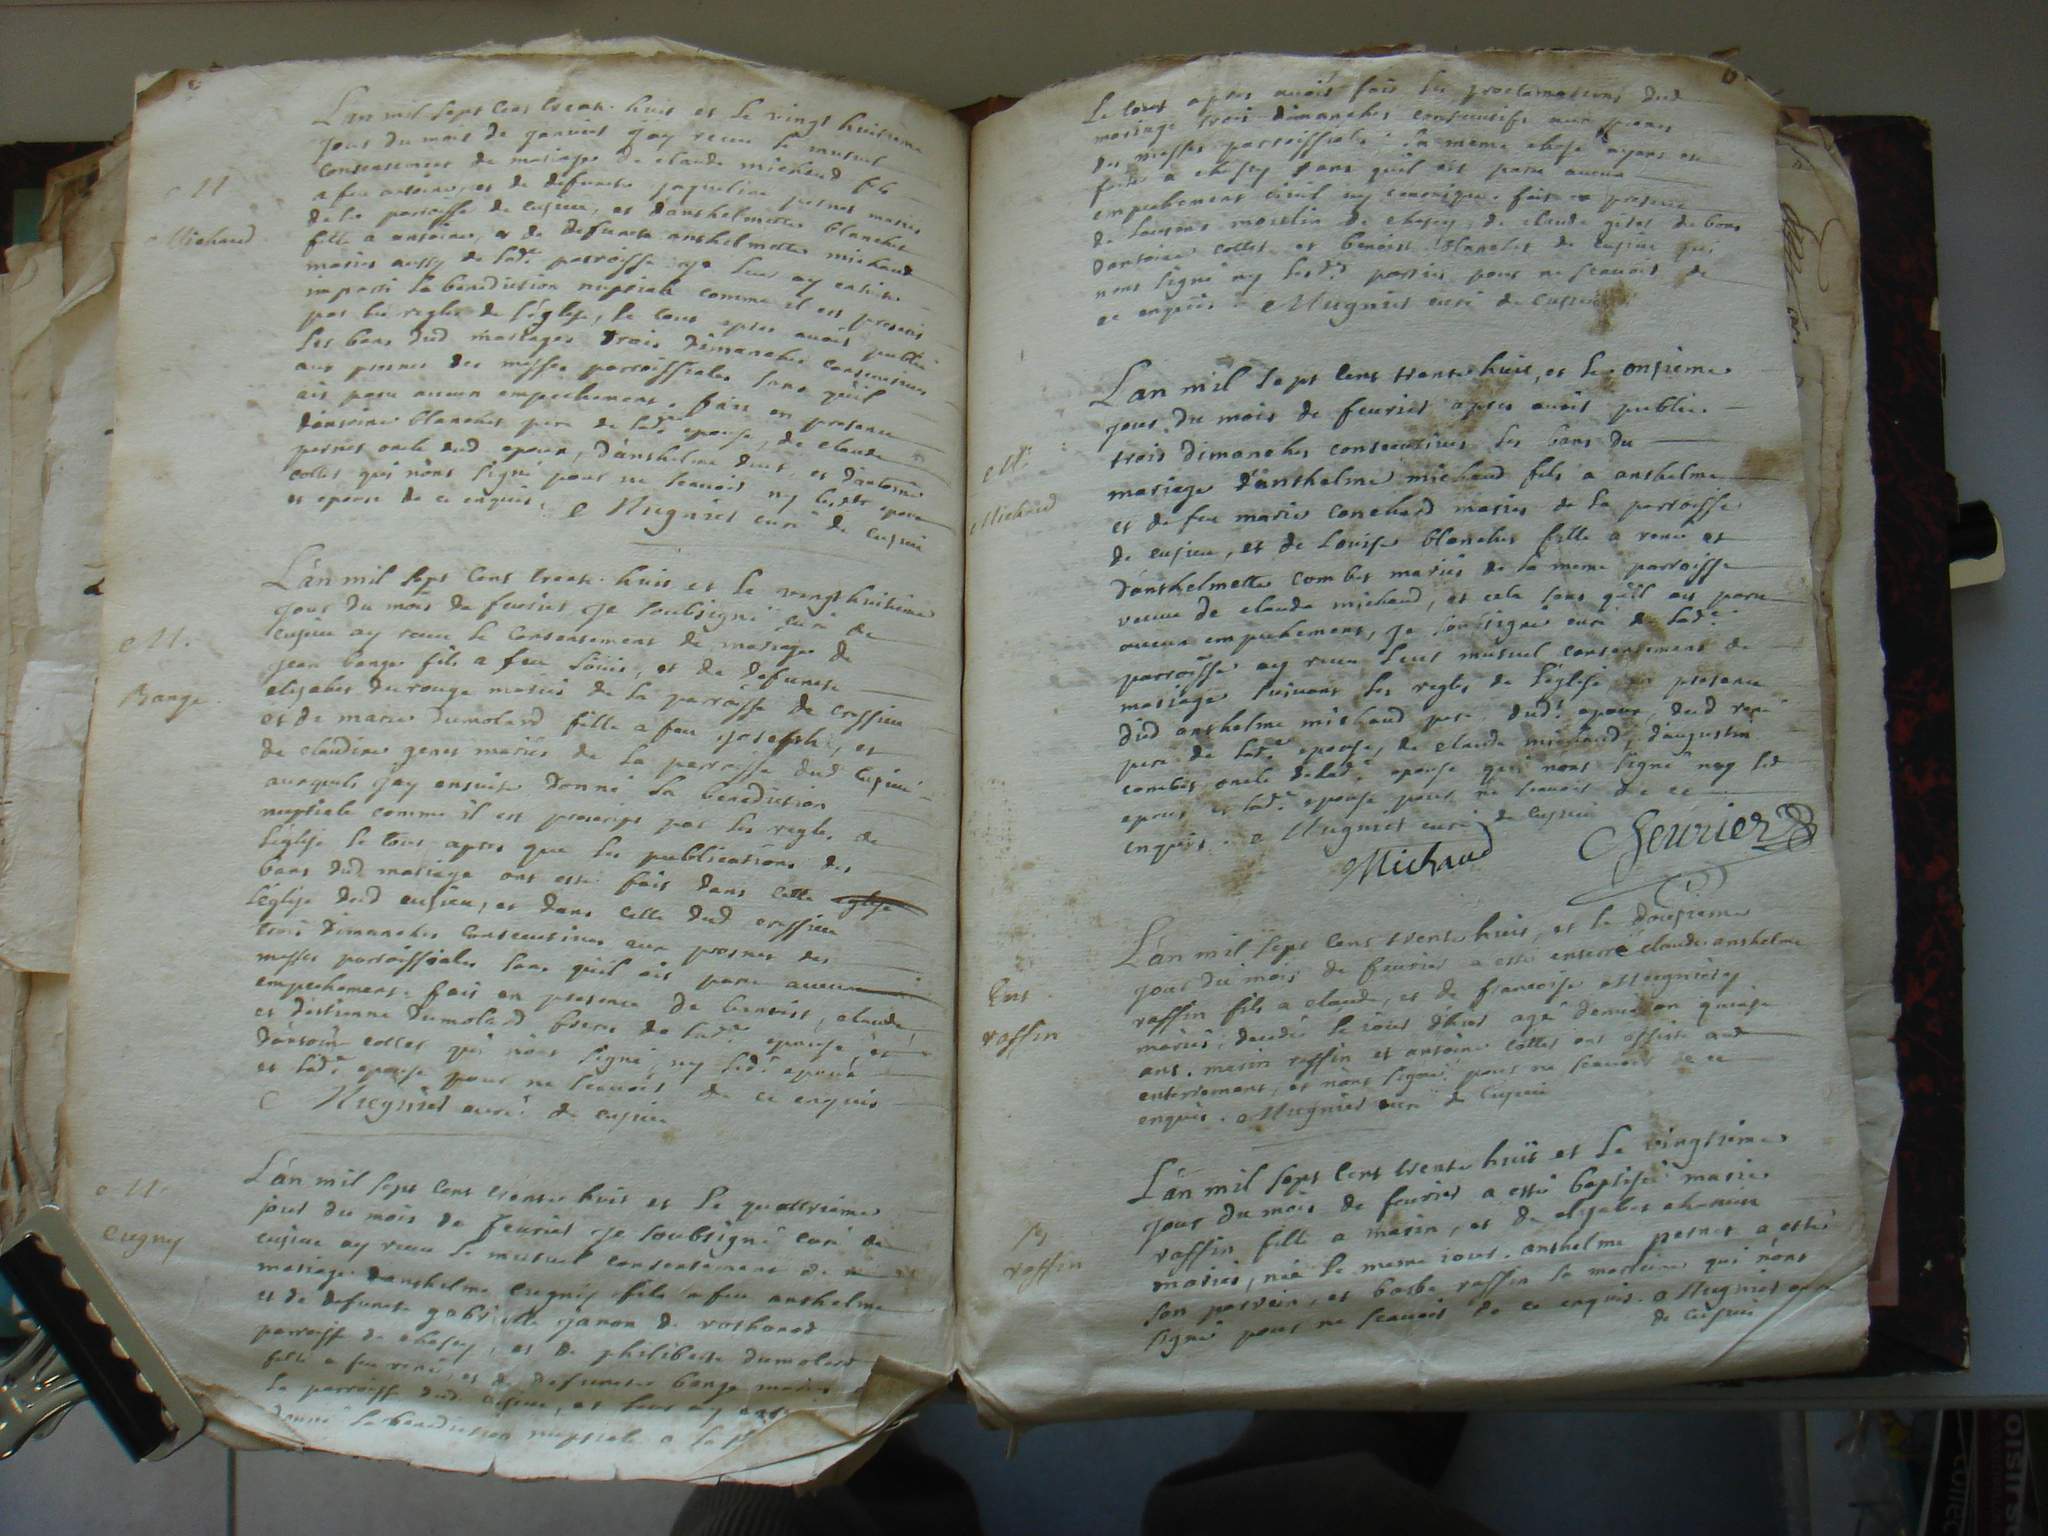 L'an mil sept cens trente huit et le vingt huitieme
jour du mois de janvier j'ay receu le mutuel
consentement de mariage de claude michaud fils
a feu antoine, et de defuncte jaqueline pernet mariés
M
Michaud
de la parroisse de cusieu, et d'anthelmette blanchet
fille a antoine, et de defuncte anthelmette michaud
mariés aussy de lad.e parroisse je leur ay ensuite
imparti la benediction nuptiale comme il est prescrit
par les regles de l'église, le tout apres avoir publié
les bans dud mariage trois dimanches consecutives
aux prones des messes parroissiales sans qu'il
ait paru aucun empechement. fait en presence
d'antoine blanchet pere de lad.e epouse, de claude
pernet oncle dud epoux, d'anthelme duc, et d'antoine
collet qui n'ont signé pour ne scavoir ny lesd epoux
et epouse de ce enquis. Mugnier curé de cusieu
L'an mil sept cens trente huit et le vingt huitieme
jour du mois de fevrier je soubsigné curé de
cusieu ay receu le consentement de mariage de
M.
Bange.
jean bange fils a feu louis, et de defuncte
elizabet durouge mariés de la parroisse de cressieu
et de marie dumolard fille a feu joseph, et
de claudine genet mariés de la parroisse dud cusieu
auxquels j'ay ensuite donné la benediction
nuptiale comme il est prescript par les regles de
l'église le tout apres que les publications des
bans dud mariage ont esté fait dans cette eglise
l'église dud cusieu, et dans celle dud cressieu
trois dimanches consecutives aux prones des
messes parroissiales sans qu'il ait paru aucun
empechement. fait en presence de benoist, claude,
et d'estienne dumolard freres de lad.e epouse, et
d'antoine collet qui n'ont signé, ny led.t epoux
et lad.e epouse pour ne scavoir de ce enquis
Mugnier curé de cusieu
L'an mil sept cens trente huit et le quattrieme
jour du mois de fevrier je soubsigné curé de
M.
cugny
cusieu ay receu le mutuel consentement de
mariage d'anthelme cugny fils a feu anthelme
et de defuncte gabrielle janon de
parroisse de chasey, et de philiberte dumolard
fille a feu rené, et de defuncte bange mariés
la parroisse dud cusieu, et leur ay
donné la benediction nuptiale a la
6
Le tout apres avoir fait les proclamations dud
mariage trois dimanches consecutifs aux prones
des messes parroissiales la meme chose ayant esté
faite a chasey sans qu'il ait paru aucun
empechement civil ny canonique. fait en presence
de moulin de chasey, de claude de bons
d'antoine collet et benoist blanchet de cusieu qui
n'ont signé ny lesd.tes parties pour ne scavoir de
ce enquis. Mugnier curé de cusieu
L'an mil sept cens trente huit, et le onsieme
jour du mois de fevrier apres avoir publié
trois dimanches consecutives les bans du
M.
Michaud
mariage d'anthelme michaud fils a anthelme
et de feu marie conchard mariés de la parroisse
de cusieu, et de louise blanchet fille a rené et
d'anthelmette combet mariés de la meme parroisse
veuve de claude michaud, et cela sans qu'il ait paru
aucun empechement, je soubsigné curé de lad.e
parroisse ay receu leur mutuel consentement de
mariage suivant les regles de l'église, en presence
dud anthelme michaud pere dud.t epoux, dud rené
pere de lad.e epouse, de claude michaud, d'augustin
combet oncle de lad.e epouse qui n'ont signé ny led
epoux et lad.e epouse pour ne scavoir de ce
enquis. Mugnier curé de cusieu
Michaud
L'an mil sept cens trente huit, et le dousieme
jour du mois de fevrier a esté enterré claude anthelme
Ent
raffin
raffin fils a claude, et de francoise
mariés, decedé le jour d'hier agé d'environ quinze
ans. marin raffin et antoine collet ont assisté aud
enterrement, et n'ont signé pour ne scavoir de ce
enquis. Mugnier curé de cusieu
L'an mil sept cens trente huit et le vingtieme
jour du mois de fevrier a esté baptisé marie
raffin
raffin fille a marin, et de elizabet
mariés, née le meme jour. anthelme pernet a esté
son parrein, et barbe raffin la marreine qui n'ont
signé pour ne scavoir de ce enquis. Mugnier curé
de cusieu